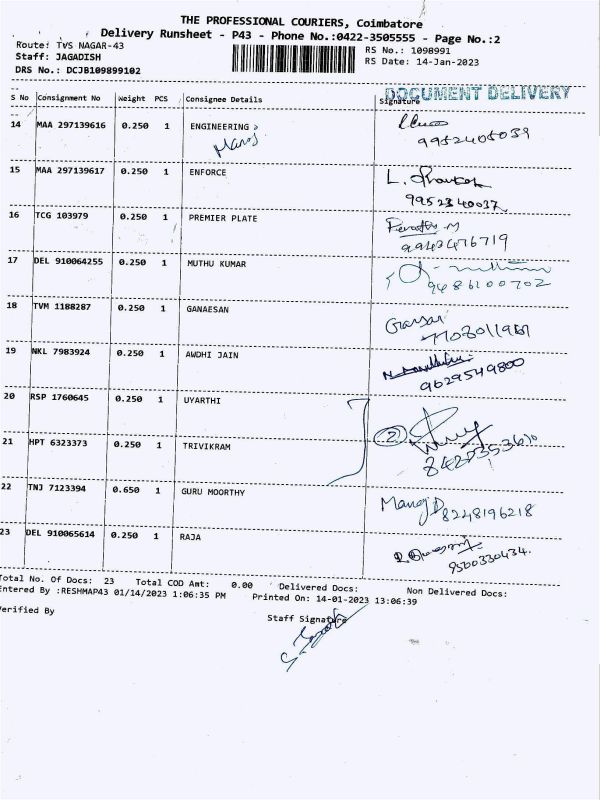 THE PROFESSIONAL COURIERS, Coimbatore
Delivery Runsheet - P43 - Phone No.:0422-3505555 - Page No.:2
Route: TVS NAGAR-43 RS No.: 1098991
Staff: JAGADISH RS Date: 14-Jan-2023
DRS No.: DCJB109899102
DOCUMENT DELIVERY
S No Consignment No Weight PCS Consignee Details Signature
14 MAA 297139616 0.250 1 ENGINEERING
Manoj 9952405039
15 MAA 297139617 0.250 1 ENFORCE
9952340037
16 TCG 103979 0.250 1 PREMIER PLATE
9943476719
17 DEL 910064255 0.250 1 MUTHU KUMAR
9486100702
18 TVM 1188287 0.250 1 GANAESAN
19 NKL 7983924 0.250 1 AWDHI JAIN
9629549800
20 RSP 1760645 0.250 1 UYARTHI
2
21 HPT 6323373 0.250 1 TRIVIKRAM
22 TNJ 7123394 0.650 1 GURU MOORTHY
Manoj D 8248196218
23 DEL 910065614 0.250 1 RAJA
9500330434.
Total No. Of Docs: 23 Total COD Amt: 0.00 Delivered Docs: Non Delivered Docs:
Entered By :RESHMAP43 01/14/2023 1:06:35 PM Printed On: 14-01-2023 13:06:39
Verified By Staff Signature